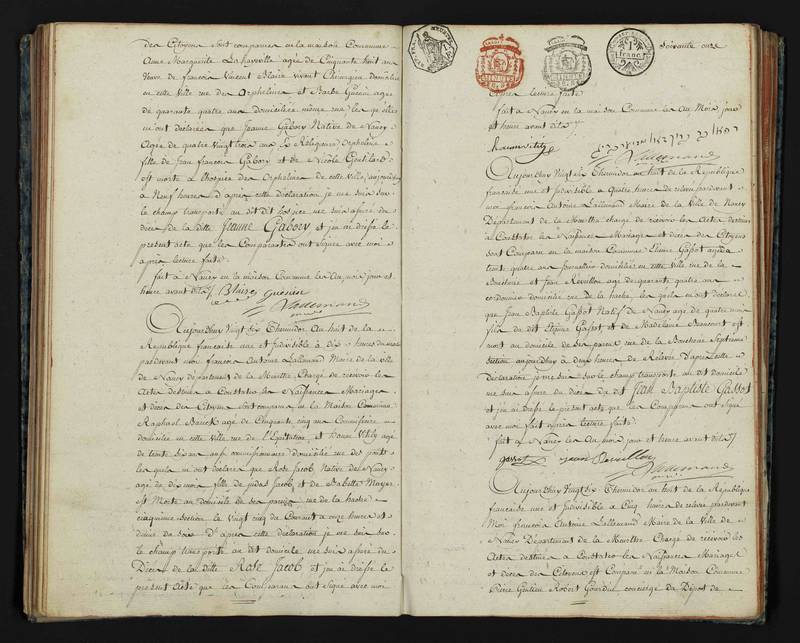 des Citoyens sont comparues en la maison Commune
Anne Marguerite Lahaxeville agée de Cinquante huit ans
Veuve de francois Vincent Blaise vivant Chirurgien domiciliée
en cette Ville rue des Orphelines et Barbe Guérin agée
de quarante quatre ans domiciliée même rue, les quelles
m'ont déclarées que Jeanne Gabory Native de Nancy
Agée de quatre vingt trois ans Ex Religieuse Orpheline
fille de Jean francois Gabory et de Nicole
est morte à l'hospice des Orphelines de cette Ville, aujourd'huy
à Neuf heures d'après cette déclaration je me suis sur
le champ transporté au dit dit hospice me suis assuré du
décès de la ditte Jeanne Gabory et j'en ai dressé le
présent acte que les Comparantes ont signées avec moi
après lecture faite.
fait à Nancy en la maison Commune les An, mois jour et
heure avant dits /. Blaise
Lallemand
Aujourdhuy vingt six Thermidor An huit de la
République francaise une et indivisible à dix heures du matin
pardevant moi francois Antoine Lallemand Maire de la ville
de Nancy département de la Meurthe, Chargé de recevoir les
Actes destinés à Constater les Naissances Mariages
et décès des Citoyens sont comparus en la Maison Commune
Raphael agé de Cinquante cinq ans Commissaire
domicilié en cette ville rue de l'Equitation, et Aaron Vitily agé
de trente six ans aussi commissionnaire domicilié rue des ponts
les quels m'ont déclarés que Rose Jacob, Native de Nancy
agée de dix mois fille de Judas Jacob, et de Babette Mayer
est Morte au domicile de ses parens rue de la hache
cinquième section le vingt cinq du Courant à onze heures et
demie du soir. D'après cette déclaration je me suis sur
le champ transporté au dit domicile me suis assuré du
Décès de la ditte Rose Jacob et j'en ai dressé le
présent Acte que les Comparans ont signé avec moi
Soixante onze
1 franc
Après lecture faite
fait à Nancy en la maison Commune les An Mois, jour
et heure avant dits /.
Lallemand
Aujourdhuy Vingt six Thermidor an huit de la République
francaise une et indivisible à quatre heures de relevée pardevant
moi francois Antoine Lallemand Maire de la Ville de Nancy
Département de la Meurthe chargé de recevoir les Actes destinés
à Constater les Naissances Mariage et décès des Citoyens
sont Comparu en la maison Commune Etienne Gassot agé de
trente quatre ans journalier domicilié en cette ville rue de la
Boucherie et Jean Révillon agé de quarante quatre ans
cordonnier domicilié rue de la hache, les quels m'ont déclarés
que Jean Baptiste Gassot Natif de Nancy agé de quatre ans
fils du dit Etienne Gassot et de Madelaine Beaucourt est
mort au domicile de ses parens rue de la Boucherie Septieme
section aujourdhuy à deux heures de Relevée D'après cette
Déclaration je me suis sur le champ transporté au dit domicile
me suis assuré du décès du dit Jean Baptiste Gassot
et j'en ai dressé le présent acte que les Comparans ont signé
avec moi fait après lecture faite.
fait à Nancy les An mois, jour et heure avant dits /
gassot jean Révillon
Lallemand
Aujourdhuy Vingt six Thermidor an huit de la République
francaise une et indivisible à Cinq heures de relevée pardevant
Moi francois Antoine Lallemand Maire de la Ville de
Nancy Département de la Meurthe Chargé de recevoir les
Actes destinés à Constater les Naissances Mariages
et décès des Citoyens est Comparu en la Maison Commune
Robert concierge du Dépôt de